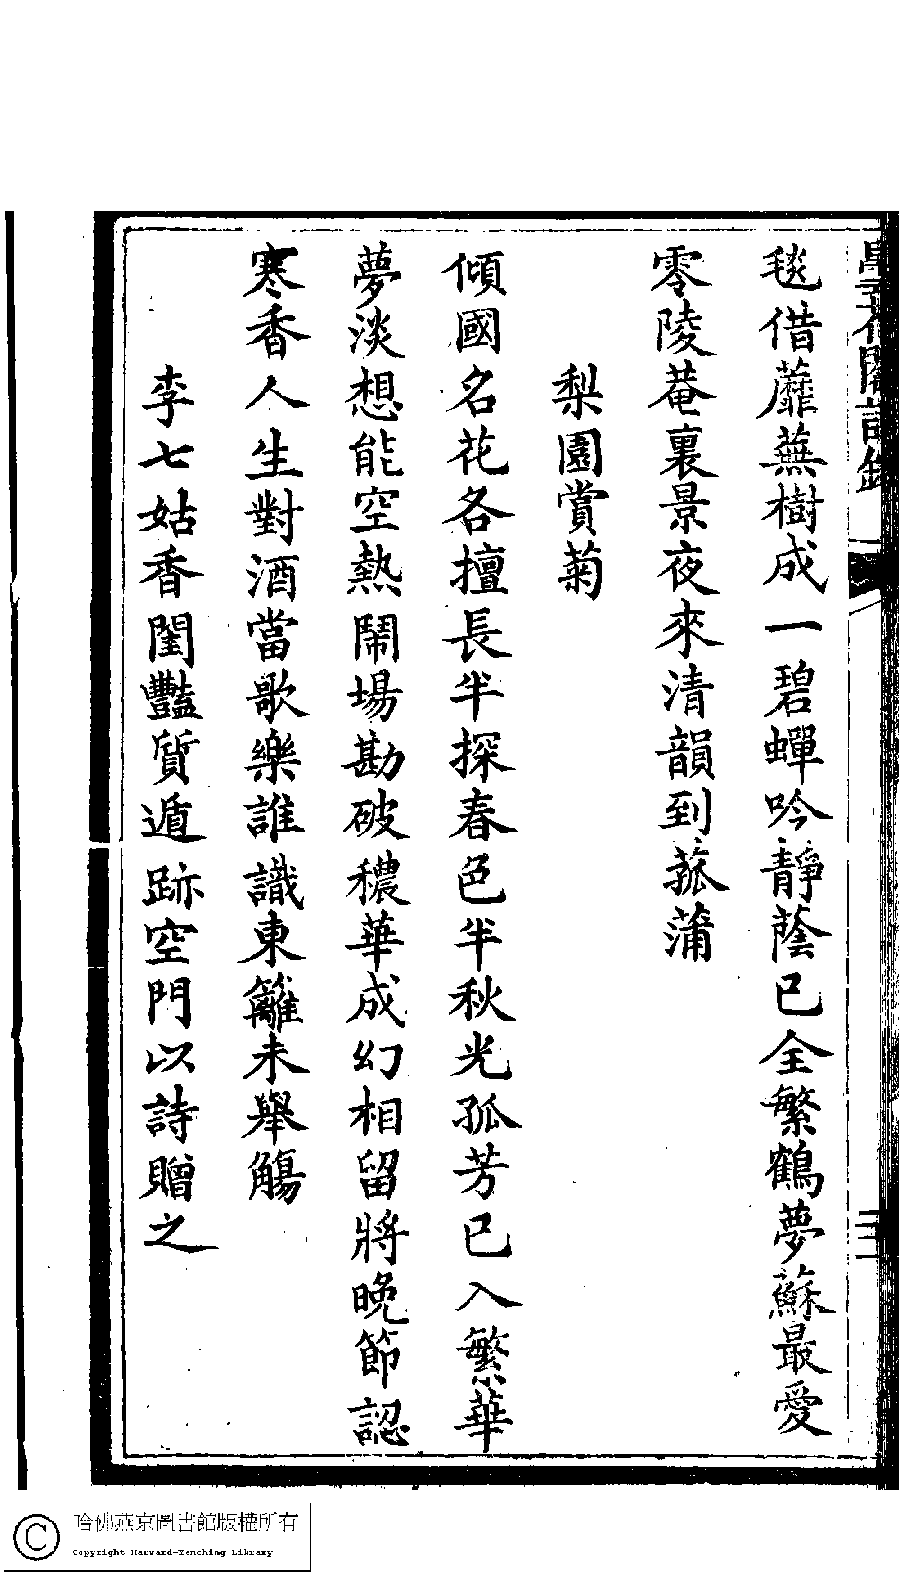 毯借蘼蕪樹成一碧蟬吟靜蔭已全繁鶴夢蘇最愛
零陵菴裏景夜來清韻到菰蒲
梨園賞菊
傾國名花各擅長半探春色半秋光孤芳已入繁華
夢淡想能空熱鬧場勘破穠華成幻相留將晚節認
寒香人生對酒當歌樂誰識東籬未舉觴
李七姑香閨豔質遁跡空門以詩贈之
哈佛燕京圖書館版權所有
Copyright Harvard-Yenching Library